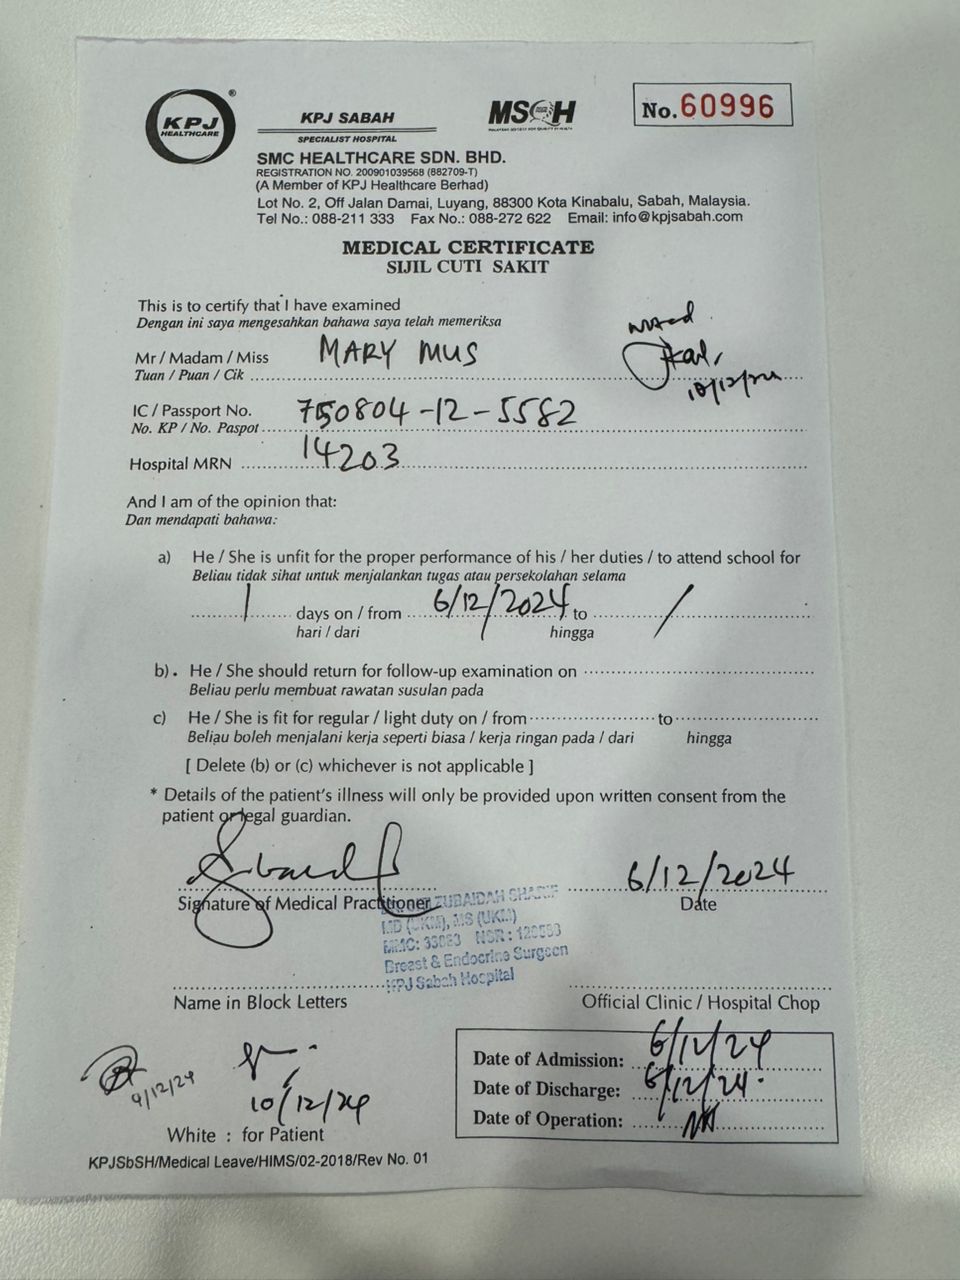 KPJ
HEALTHCARE
®
KPJ SABAH
SPECIALIST HOSPITAL
MSQH
MALAYSIAN SOCIETY FOR QUALITY IN HEALTH
No. 60996
SMC HEALTHCARE SDN. BHD.
REGISTRATION NO. 200901039568 (882709-T)
(A Member of KPJ Healthcare Berhad)
Lot No. 2, Off Jalan Damai, Luyang, 88300 Kota Kinabalu, Sabah, Malaysia.
Tel No.: 088-211 333 Fax No.: 088-272 622 Email: info@kpjsabah.com
MEDICAL CERTIFICATE
SIJIL CUTI SAKIT
This is to certify that I have examined
Dengan ini saya mengesahkan bahawa saya telah memeriksa
Mr / Madam / Miss MARY MUS
Tuan / Puan / Cik
10/12/24
IC / Passport No. 750804-12-5582
No. KP / No. Paspot
Hospital MRN 14203
And I am of the opinion that:
Dan mendapati bahawa:
a) He / She is unfit for the proper performance of his / her duties / to attend school for
Beliau tidak sihat untuk menjalankan tugas atau persekolahan selama
1 days on / from 6/12/2024 to /
hari / dari hingga
b). He / She should return for follow-up examination on
Beliau perlu membuat rawatan susulan pada
c) He / She is fit for regular / light duty on / from to
Beliau boleh menjalani kerja seperti biasa / kerja ringan pada / dari hingga
[ Delete (b) or (c) whichever is not applicable ]
* Details of the patient's illness will only be provided upon written consent from the
patient or legal guardian.
6/12/2024
Signature of Medical Practitioner
Date
ZUBAIDAH
MD (UKM), MS (UKM)
Breast & Endocrine Surgeon
KPJ Sabah Hospital
Name in Block Letters
Official Clinic / Hospital Chop
9/12/24
10/12/24
Date of Admission: 6/12/24
Date of Discharge: 6/12/24.
Date of Operation: NA
White : for Patient
KPJSbSH/Medical Leave/HIMS/02-2018/Rev No. 01